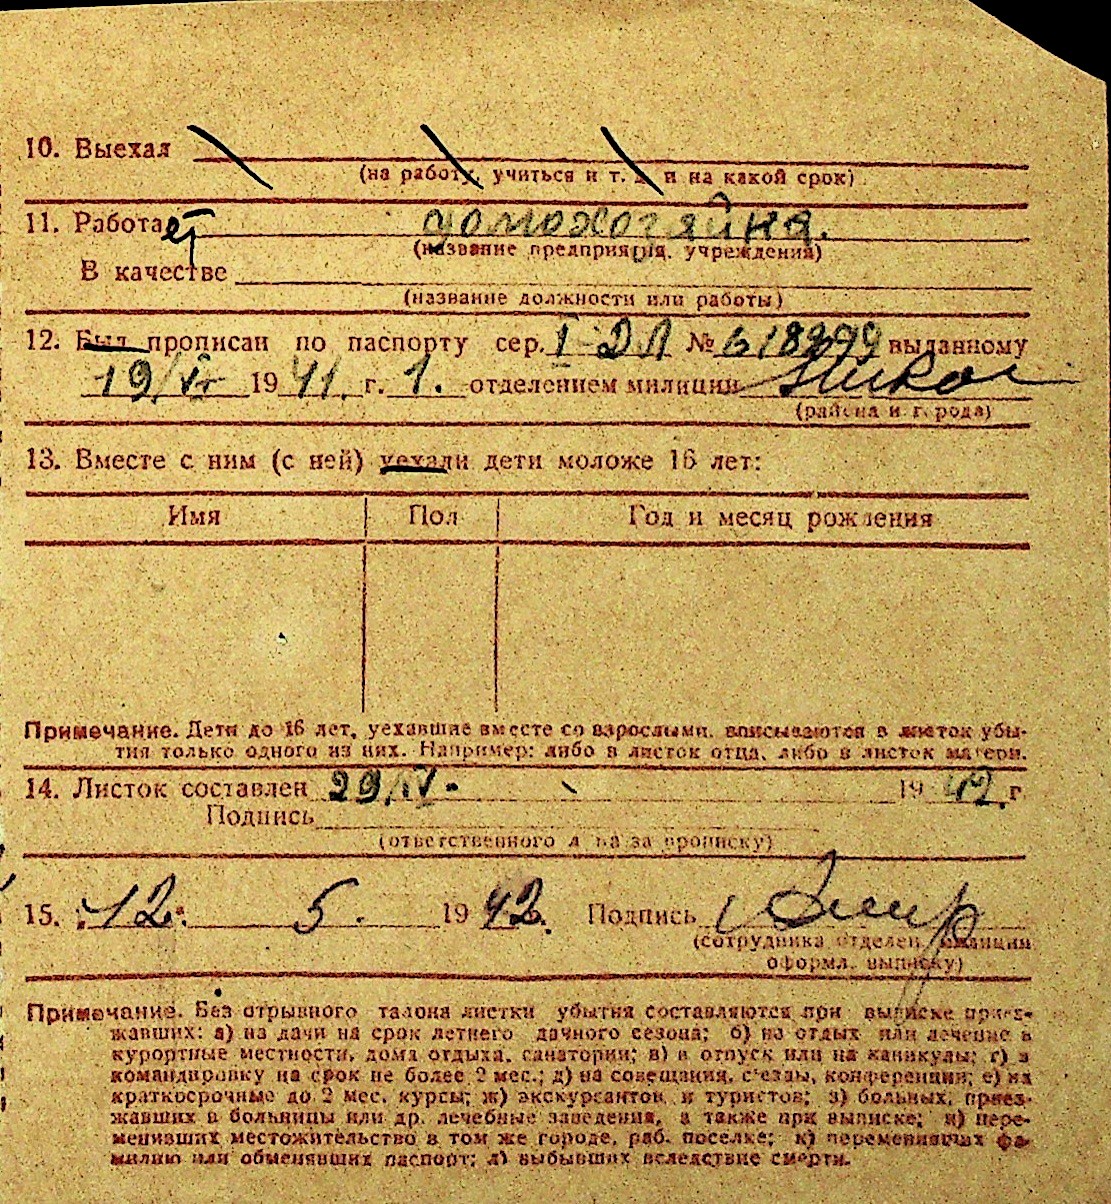 10. Выехал
(на работу, учиться и т. д. и на какой срок)
11. Работает домохозяйка.
(название предприятия, учреждения)
В качестве
(название должности или работы)
12. Был прописан по паспорту сер. I-ДЛ № 618999 выданному
19/VI 1941 г. 1. отделением милиции
(района и города)
13. Вместе с ним (с ней) уехали дети моложе 16 лет:
Имя Пол Год и месяц рождения
Примечание. Дети до 16 лет, уехавшие вместе со взрослыми, вписываются в листок убы-
тия только одного из них. Например: либо в листок отца, либо в листок матери.
14. Листок составлен 29/IV. 1942 г.
Подпись
(ответственного лица за прописку)
15. 12. 5. 1942. Подпись
(сотрудника отделен. милиции
оформл. выписку)
Примечание. Без отрывного талона листки убытия составляются при выписке приез-
жавших: а) на дачи на срок летнего дачного сезона; б) на отдых или лечение в
курортные местности, дома отдыха, санатории; в) в отпуск или на каникулы; г) в
командировку на срок не более 2 мес.; д) на совещания, с'езды, конференции; е) на
краткосрочные до 2 мес. курсы; ж) экскурсантов и туристов; з) больных, приез-
жавших в больницы или др. лечебные заведения, а также при выписке; и) пере-
менивших местожительство в том же городе, раб. поселке; к) переменивших фа-
милию или обменявших паспорт; л) выбывших вследствие смерти.